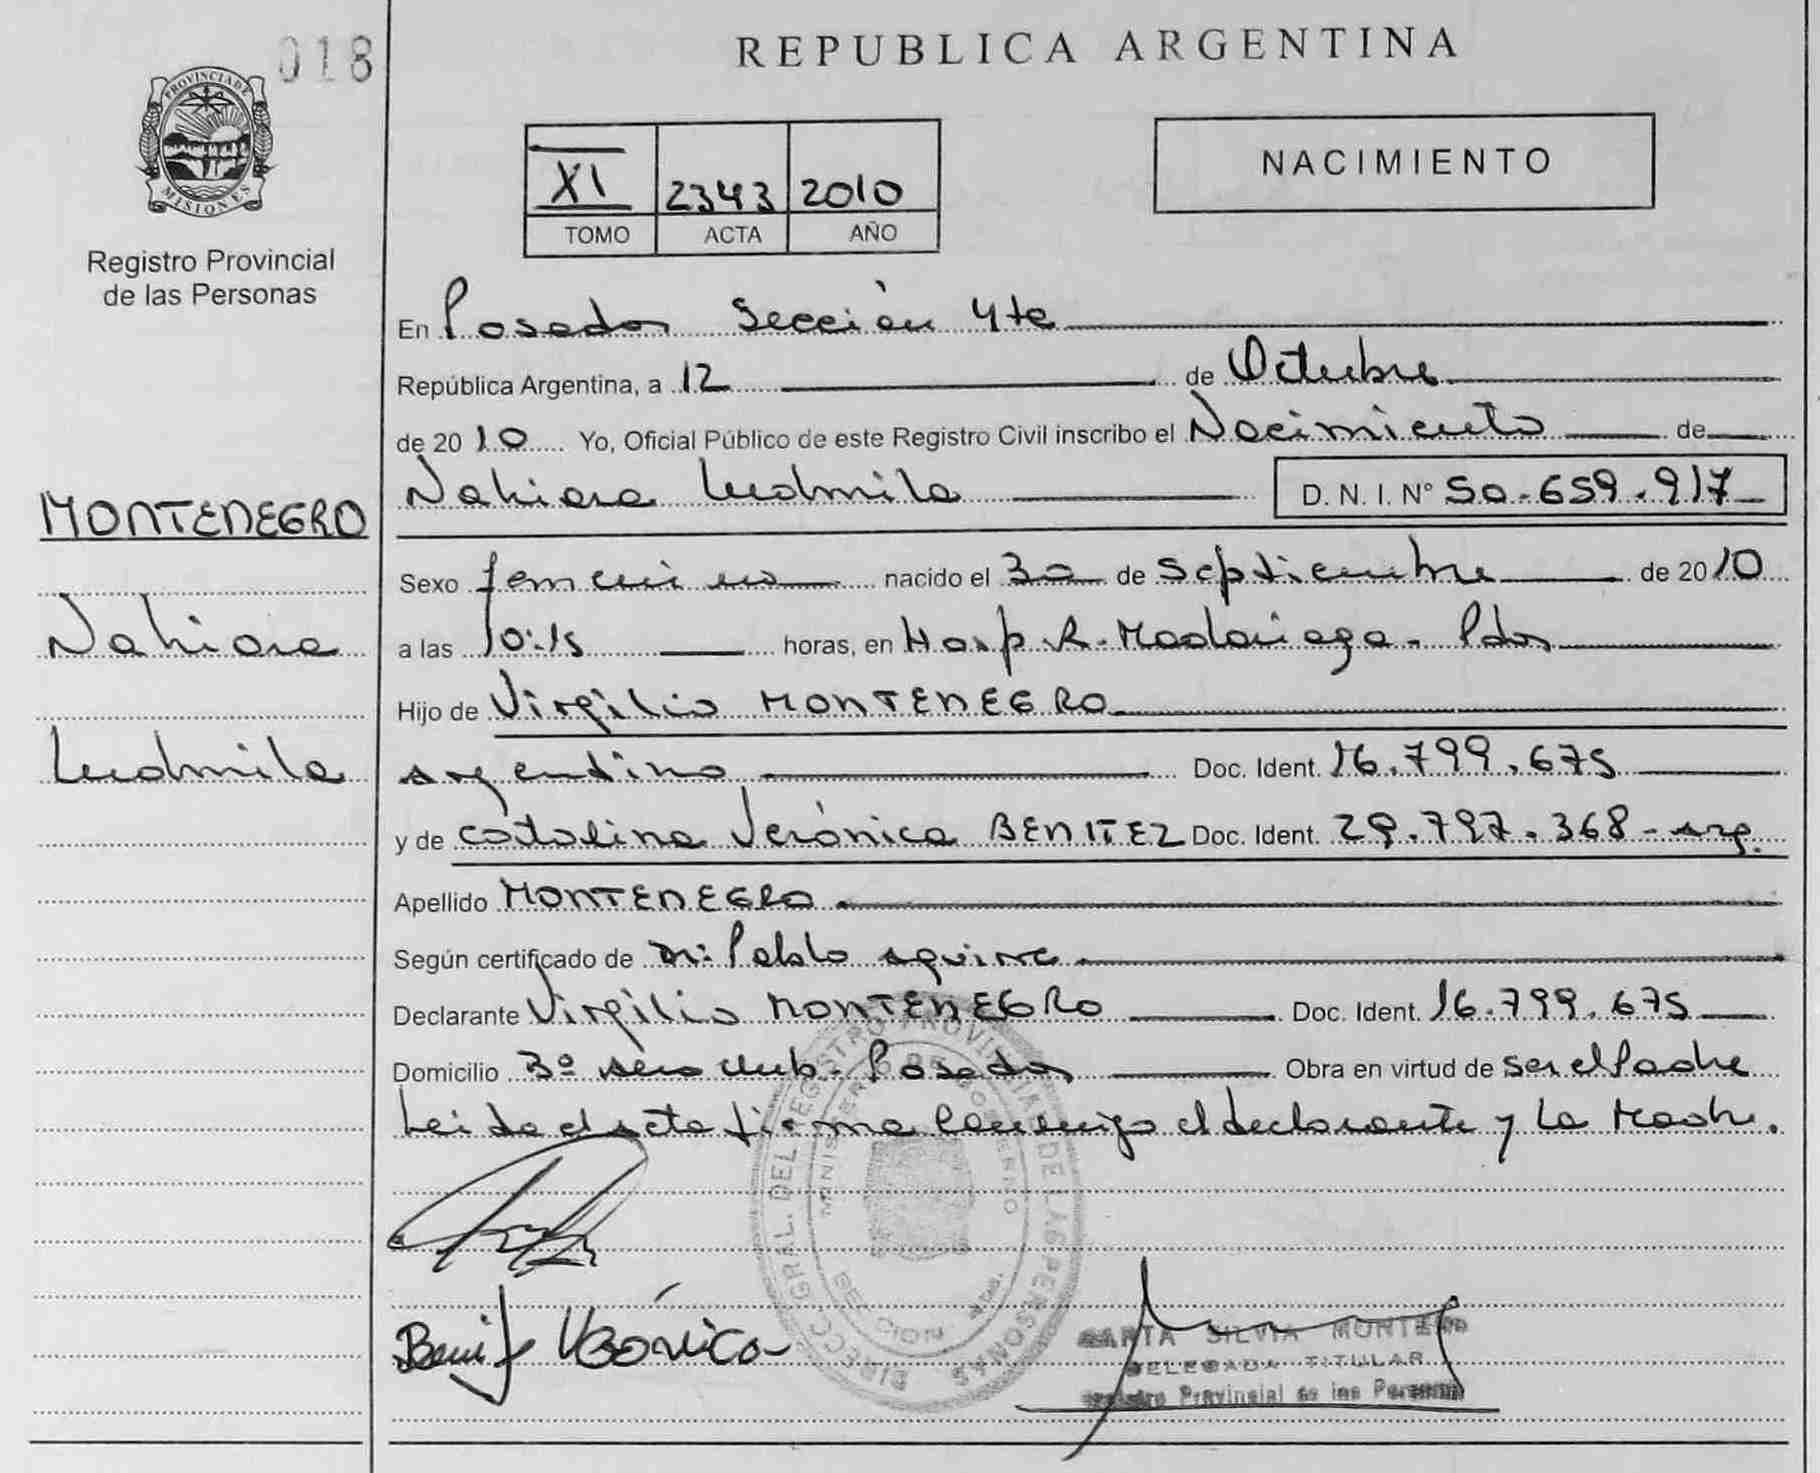 018
PROVINCIA DE
MISIONES
Registro Provincial
de las Personas
MONTENEGRO
Nahiara
Ludmila
REPUBLICA ARGENTINA
XI 2343 2010
TOMO ACTA AÑO
NACIMIENTO
En Posadas Sección 4ta
República Argentina, a 12 de Octubre
de 2010 Yo, Oficial Público de este Registro Civil inscribo el Nacimiento de
Nahiara Ludmila D. N. I. N° 50.659.917
Sexo femenino nacido el 30 de Septiembre de 2010
a las 10:15 horas, en Hosp. R. Madariaga - Pdas
Hijo de Virgilio MONTENEGRO
argentino Doc. Ident. 16.799.675
y de Catalina Verónica BENITEZ Doc. Ident. 29.797.368 - arg.
Apellido MONTENEGRO
Según certificado de Dr. Pablo Aguirre
Declarante Virgilio MONTENEGRO Doc. Ident. 16.799.675
Domicilio 3° Aero Club - Posadas Obra en virtud de ser el Padre
Leida el acta firma conmigo el declarante y la Madre.
DIRECC. GRAL. DEL REGISTRO PROVINCIAL DE LAS PERSONAS
MINISTERIO DE GOBIERNO
Benitez Verónica
SILVIA MONTE
DELEGADA TITULAR
Registro Provincial de las Personas